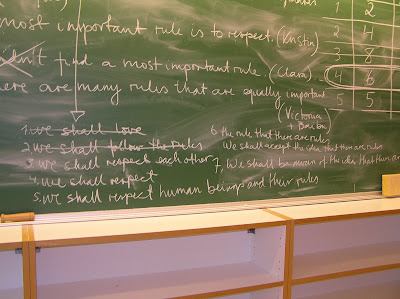 most important rule is to respect. (Kristin)
find a most important rule. (Clara)
ere are many rules that are equally important
(Victoria
1. we shall love
2. we shall follow the rules
3. we shall respect each other
4. we shall respect
5. we shall respect human beings and their rules
6 the rule that there are rules
We shall accept the idea that there are rules
7. We shall be aware of the idea that there are
1 2
2 4
3 8
4 6
5 5